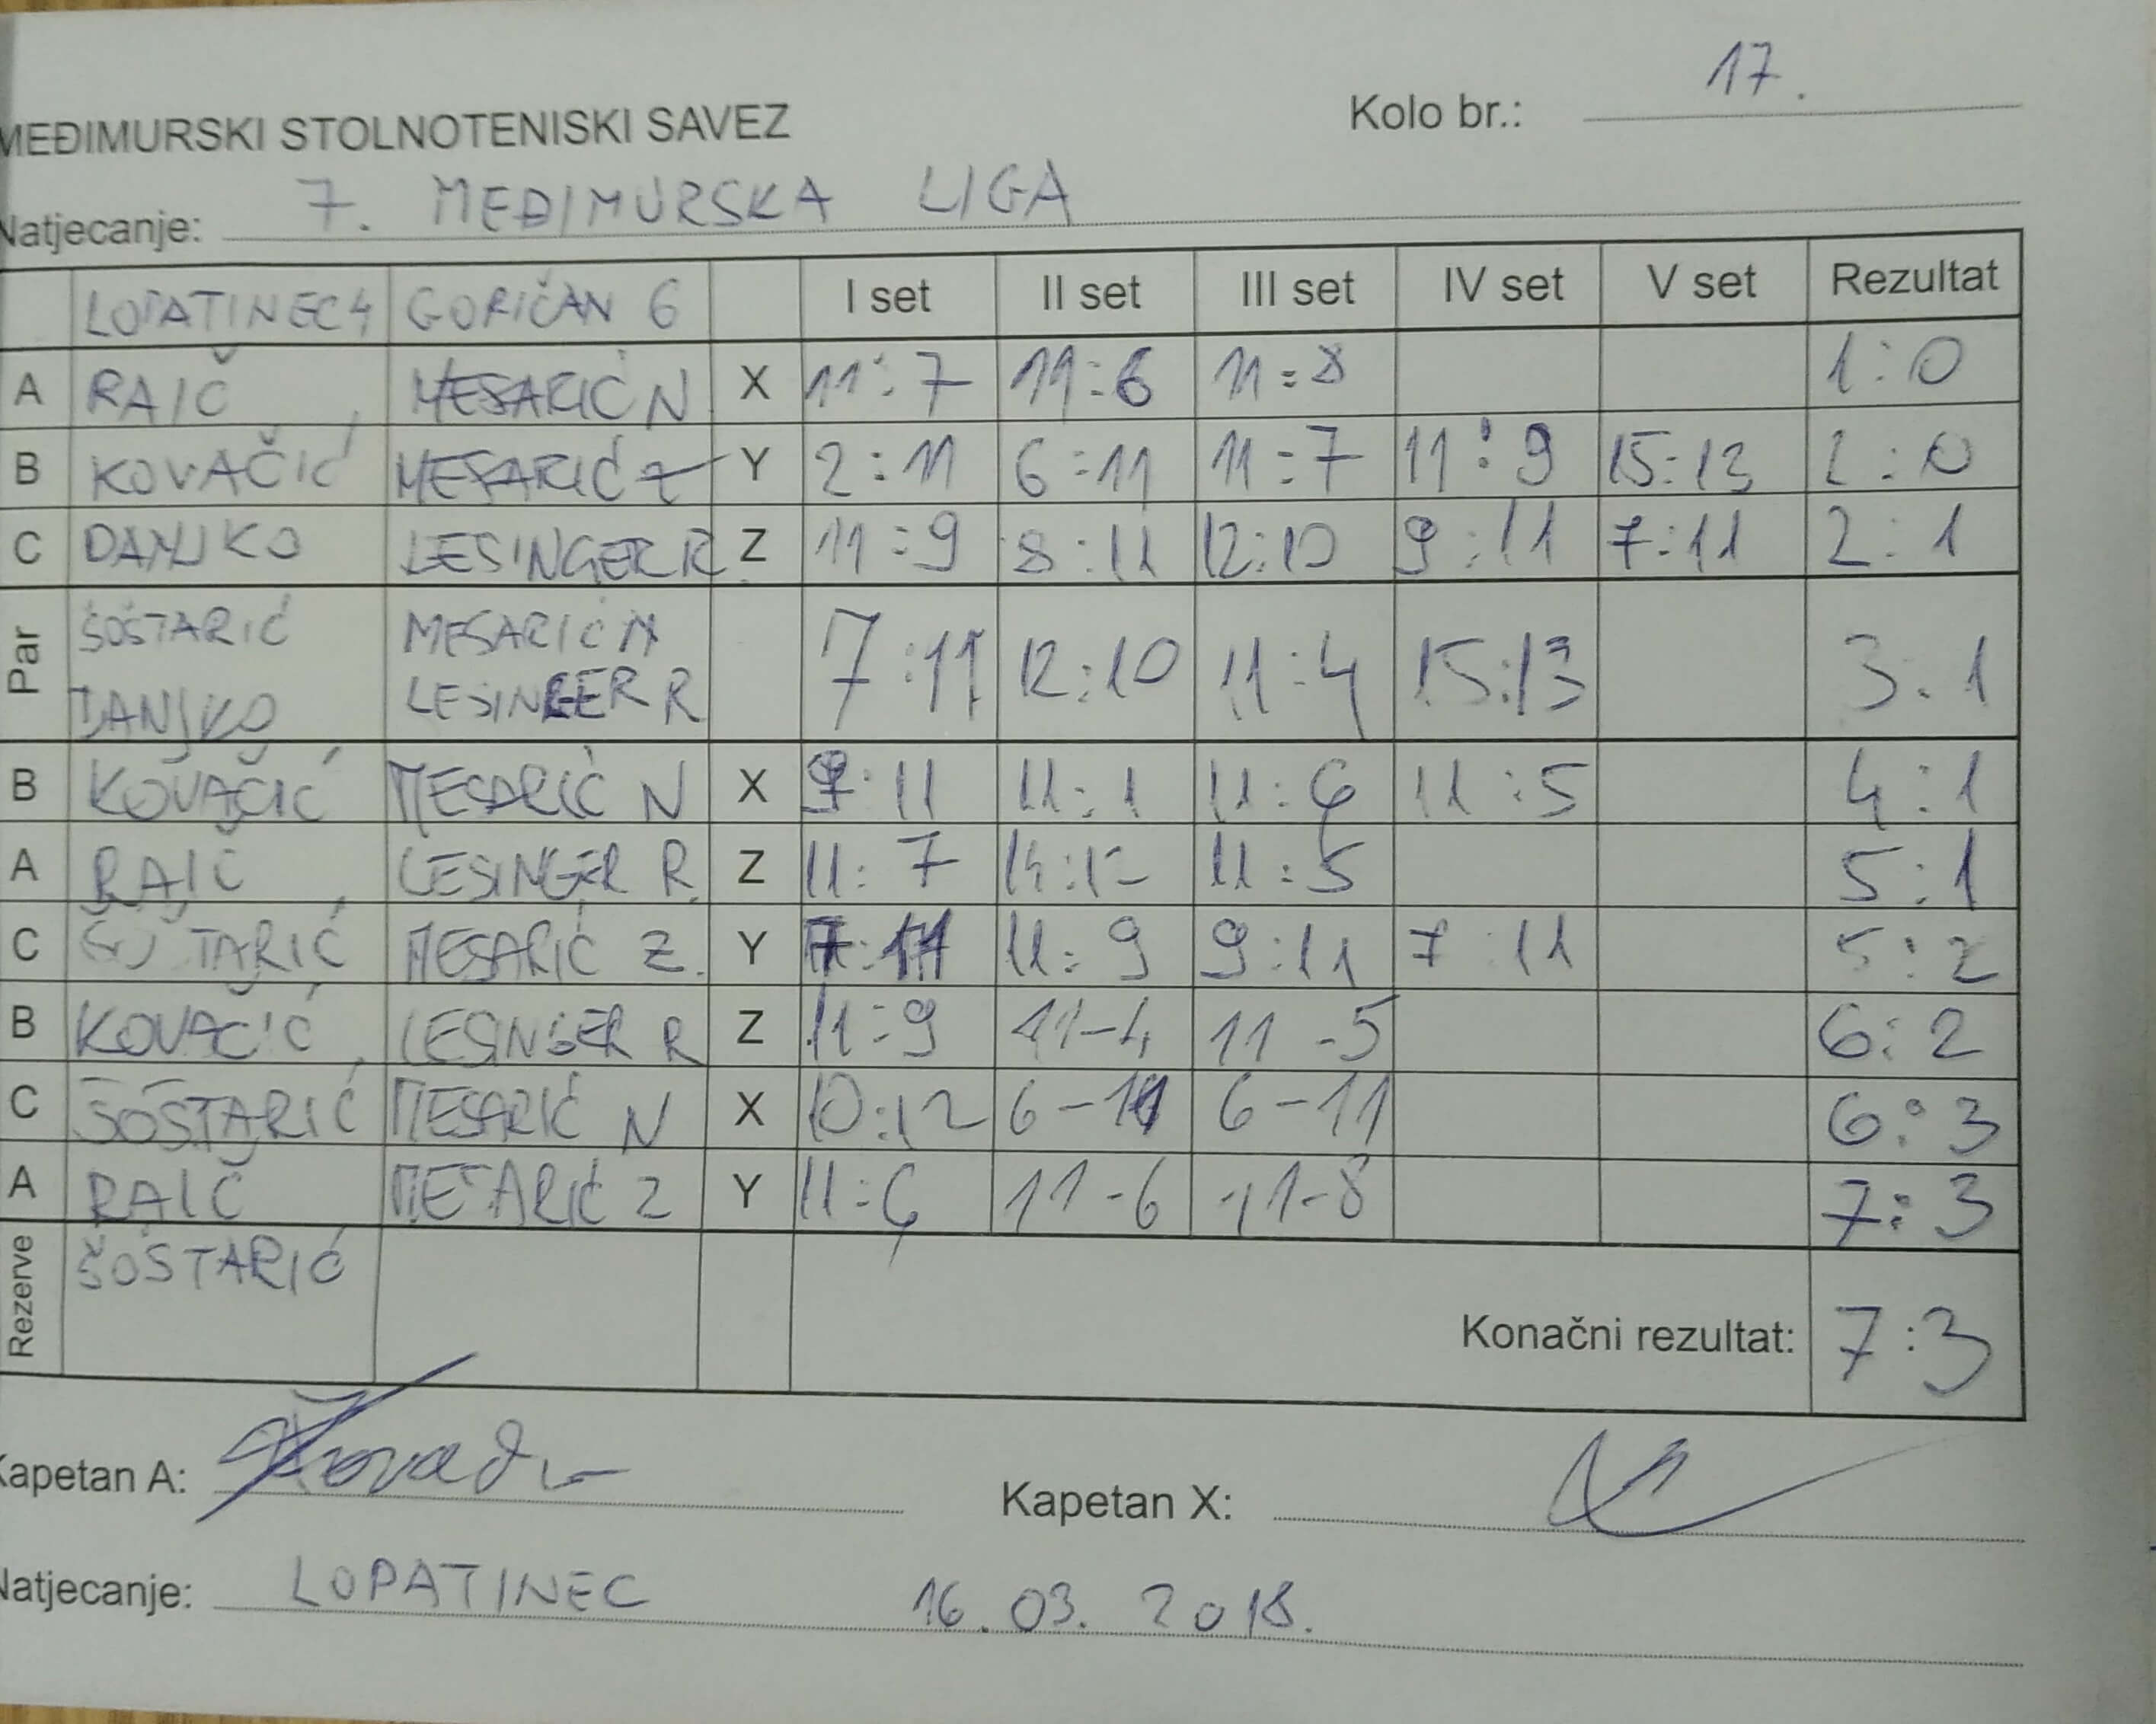 Kolo br.: 17.
MEĐIMURSKI STOLNOTENISKI SAVEZ
Natjecanje: 7. MEĐIMURSKA LIGA
LOPATINEC 4 GORIČAN 6 I set II set III set IV set V set Rezultat
A RAIČ MESARIĆ N X 11:7 11:6 11:8 1:0
B KOVAČIĆ MESARIĆ Z Y 2:11 6:11 11:7 11:9 15:13 2:0
C DANJKO LESINGER R Z 11:9 8:11 12:10 9:11 7:11 2:1
Par ŠOŠTARIĆ MESARIĆ N 7:11 12:10 11:4 15:13 3:1
DANJKO LESINGER R
B KOVAČIĆ MESARIĆ N X 9:11 11:1 11:6 11:5 4:1
A RAIČ LESINGER R. Z 11:7 14:12 11:5 5:1
C ŠOŠTARIĆ MESARIĆ Z. Y 7:11 11:9 9:11 7:11 5:2
B KOVAČIĆ LESINGER R Z 11:9 11-4 11-5 6:2
C ŠOŠTARIĆ MESARIĆ N X 10:12 6-11 6-11 6:3
A RAIČ MESARIĆ Z Y 11:6 11-6 11-8 7:3
Rezerve ŠOŠTARIĆ
Konačni rezultat: 7:3
Kapetan A: Kapetan X:
Natjecanje: LOPATINEC 16.03.2018.